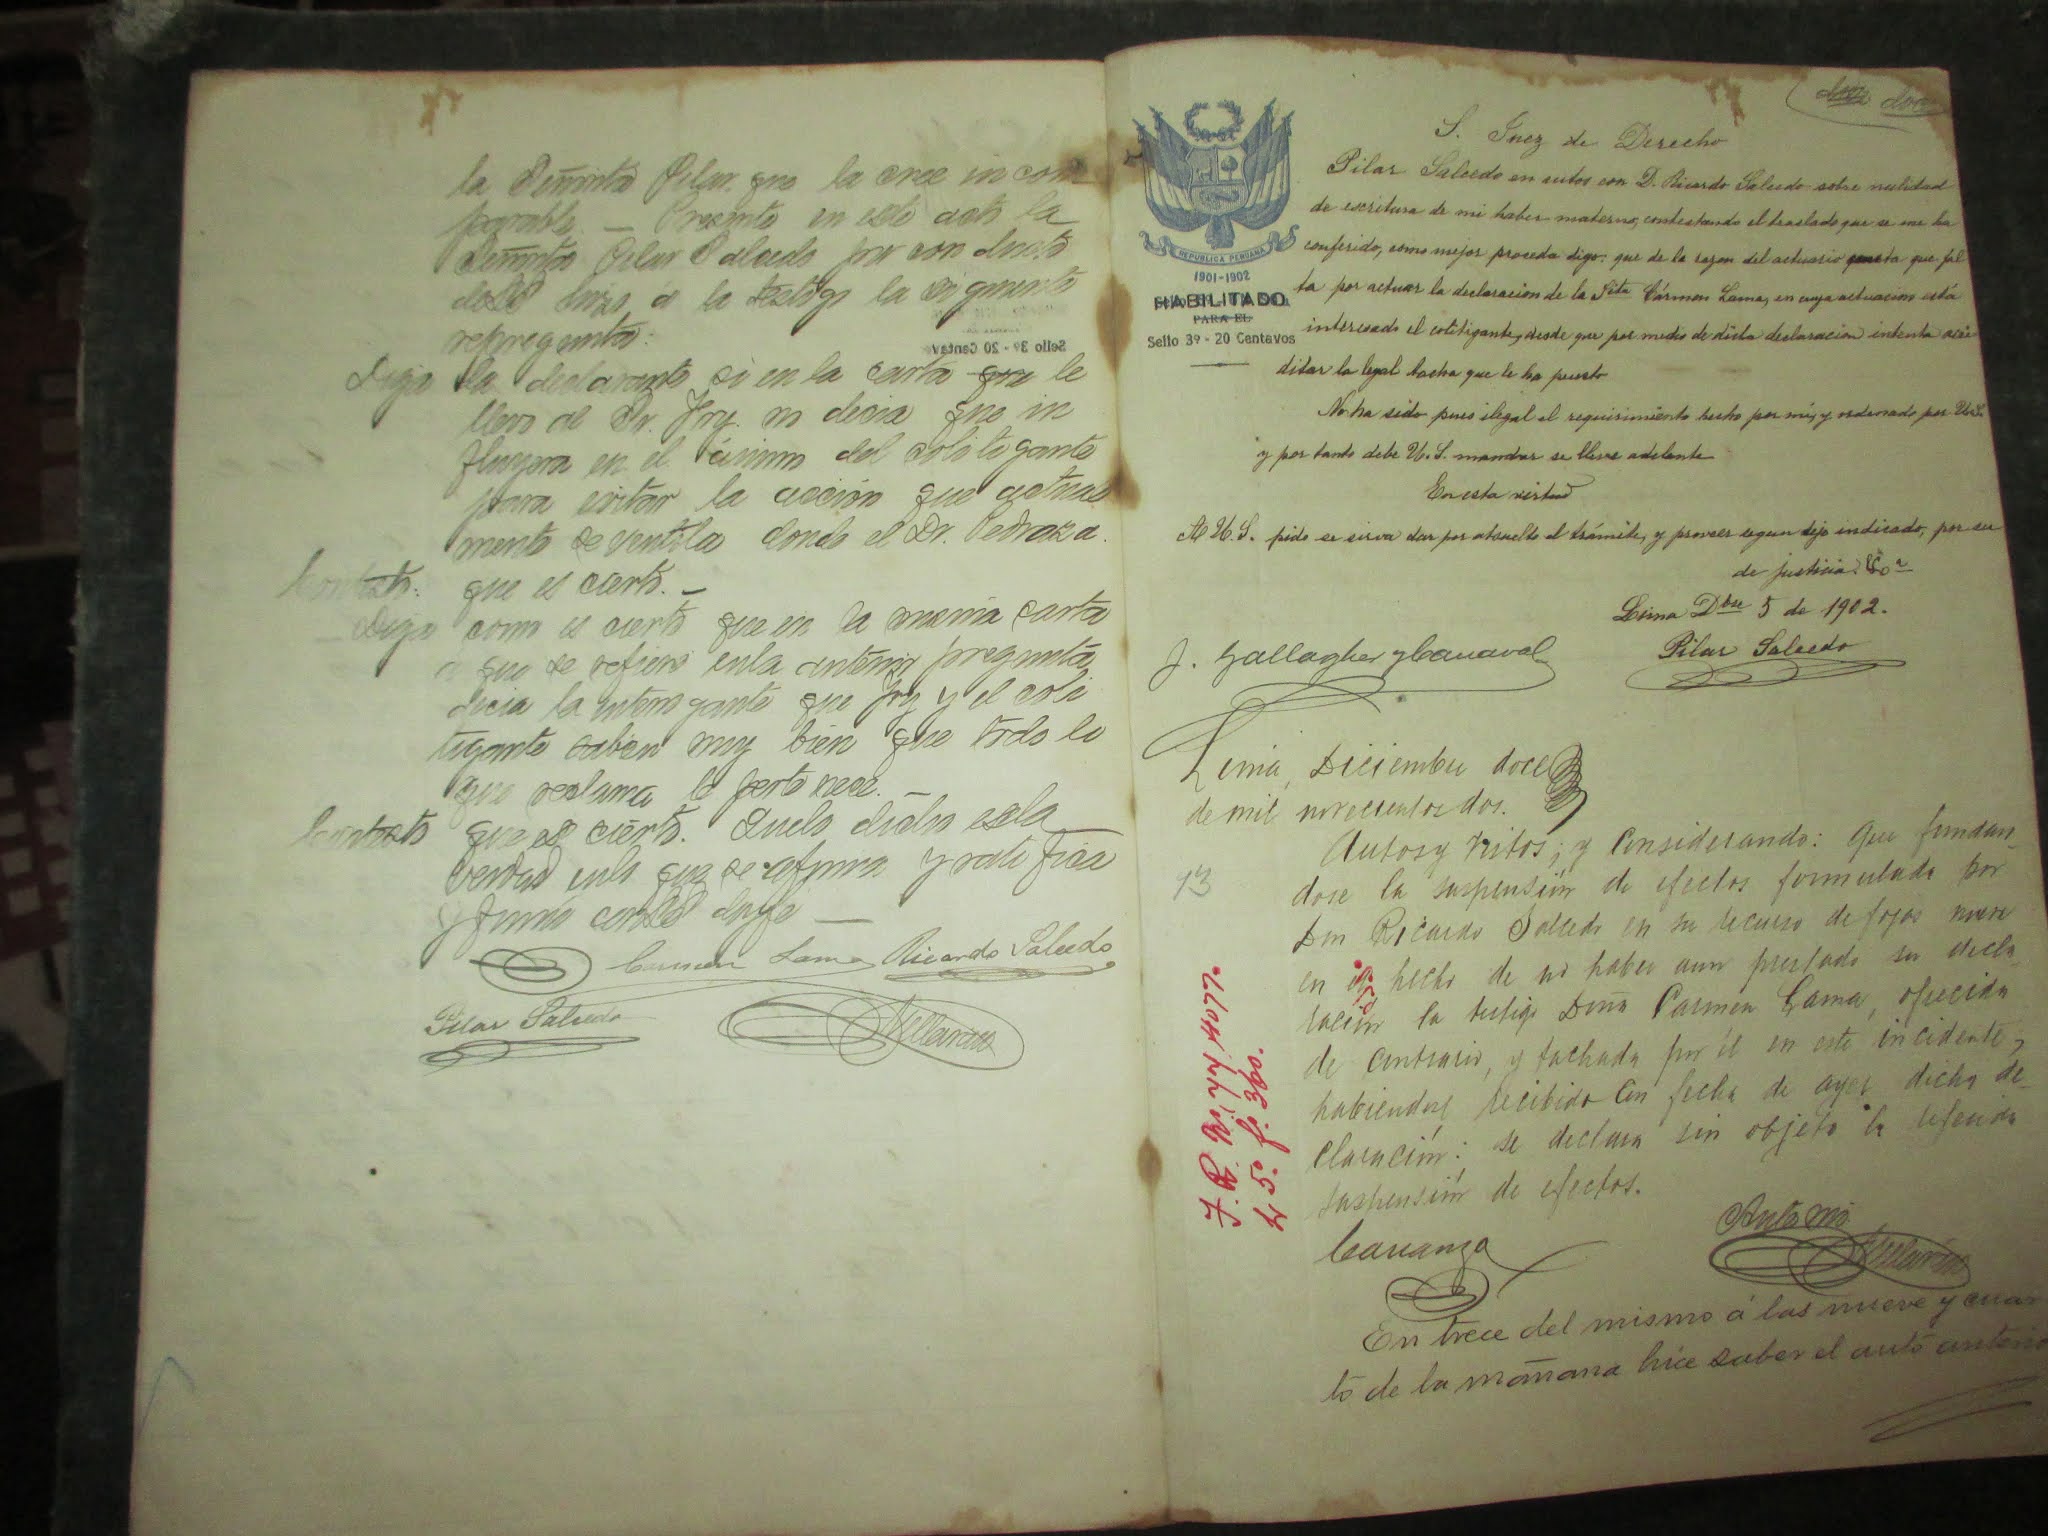 la Señorita Pilar que la cree incom
parable. — Presente en este acto la
Señorita Pilar Salcedo por conducto
del hizo a la testigo la siguiente
repregunta:
Diga la declarante si en la carta que le
llevó al Dr. Yry. no decia que in
fluyera en el ánimo del colitigante
para evitar la acción que actual
mente se ventila donde el Dr. Pedraza.
Contestó: que es cierto. —
Diga como es cierto que en la misma carta
á que se refiere en la anterior pregunta
decia la interrogante que Yry y el coli
tigante saben muy bien que todo lo
que reclama le pertenece. —
Contestó que es cierto. Que lo dicho es la
verdad en lo que se afirma y ratifica
y firmó doy fe —
Carmen Lama Ricardo Salcedo
Pilar Salcedo Villarán
Sello 3º - 20 Centav
doce doce
REPUBLICA PERUANA
1901-1902
HABILITADO
PARA EL
Sello 3º - 20 Centavos
S. Juez de Derecho
Pilar Salcedo en autos con D. Ricardo Salcedo sobre nulidad
de escritura de mi haber materno, contestando el traslado que se me ha
conferido, como mejor proceda digo: que de la razon del actuario consta que fal
ta por actuar la declaracion de la Sita Cármen Lama, en cuya actuacion está
interesado el colitigante, desde que por medio de dicha declaracion intenta acre
ditar la legal tacha que le ha puesto
No ha sido pues ilegal el requirimiento hecho por mi, y ordenado por U.S.
y por tanto debe U.S. mandar se lleve adelante
En esta virtud
A U.S. pido se sirva dar por absuelto el trámite, y proveer segun dejo indicado, por ser
de justicia.
Lima Dbre 5 de 1902.
J. Gallagher y Canaval Pilar Salcedo
Lima, Diciembre doce
de mil novecientos dos.
Autos y vistos; y considerando: que fundan-
dose la suspensión de efectos formulada por
Don Ricardo Salcedo en su recurso de fojas nueve
en el hecho de no haber aun prestado su decla
ración la testigo Doña Carmen Lama, ofrecida
de contrario, y tachada por él en este incidente, y
habiendose recibido con fecha de ayer dicha de-
claración: se declara sin objeto la referida
suspensión de efectos.
13
J. R. No 77 4077.
L 5º f. 360.
Carranza Ante mi
Villarán
En trece del mismo á las nueve y cuar
to de la mañana hice saber el auto anterior